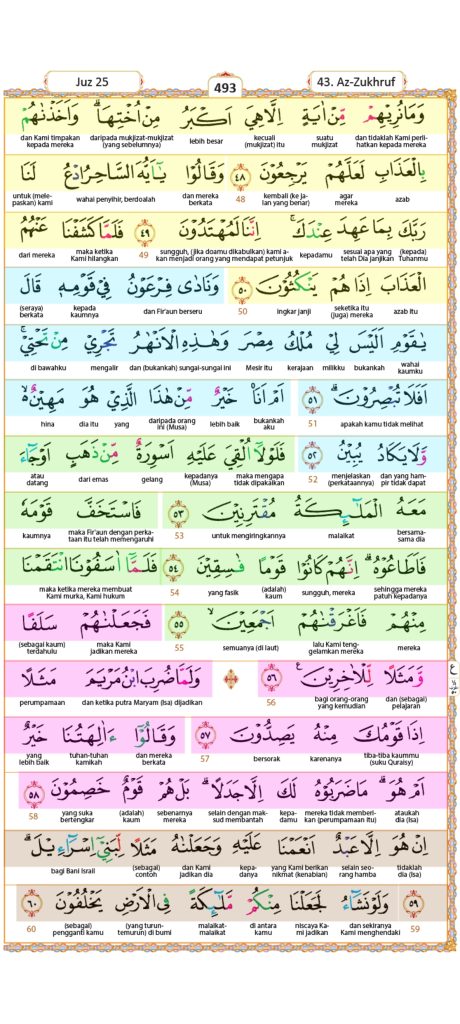 Juz 25
493
43. Az-Zukhruf
وَمَا نُرِيْهِمْ مِّنْ اٰيَةٍ اِلَّا هِيَ اَكْبَرُ مِنْ اُخْتِهَاۗ وَاَخَذْنٰهُمْ
dan tidaklah Kami perlihatkan kepada mereka suatu mukjizat kecuali (mukjizat) itu lebih besar daripada mukjizat-mukjizat (yang sebelumnya) dan Kami timpakan kepada mereka
بِالْعَذَابِ لَعَلَّهُمْ يَرْجِعُوْنَ ٤٨ وَقَالُوْا يٰٓاَيُّهَ السَّاحِرُ ادْعُ لَنَا
azab agar mereka kembali (ke jalan yang benar) 48 dan mereka berkata wahai penyihir, berdoalah untuk (melepaskan) kami
رَبَّكَ بِمَا عَهِدَ عِنْدَكَۚ اِنَّنَا لَمُهْتَدُوْنَ ٤٩ فَلَمَّا كَشَفْنَا عَنْهُمُ
(kepada) Tuhanmu sesuai apa yang telah Dia janjikan kepadamu sungguh, (jika doamu dikabulkan) kami akan menjadi orang yang mendapat petunjuk 49 maka ketika Kami hilangkan dari mereka
الْعَذَابَ اِذَا هُمْ يَنْكُثُوْنَ ٥٠ وَنَادٰى فِرْعَوْنُ فِيْ قَوْمِهٖ قَالَ
azab itu seketika itu (juga) mereka ingkar janji 50 dan Fir'aun berseru kepada kaumnya (seraya) berkata
يٰقَوْمِ اَلَيْسَ لِيْ مُلْكُ مِصْرَ وَهٰذِهِ الْاَنْهٰرُ تَجْرِيْ مِنْ تَحْتِيْۚ
wahai kaumku bukankah milikku kerajaan Mesir itu dan (bukankah) sungai-sungai ini mengalir di bawahku
اَفَلَا تُبْصِرُوْنَۗ ٥١ اَمْ اَنَا۠ خَيْرٌ مِّنْ هٰذَا الَّذِيْ هُوَ مَهِيْنٌ ەۙ
apakah kamu tidak melihat 51 bukankah aku lebih baik daripada orang ini (Musa) yang dia itu hina
وَّلَا يَكَادُ يُبِيْنُ ٥٢ فَلَوْلَآ اُلْقِيَ عَلَيْهِ اَسْوِرَةٌ مِّنْ ذَهَبٍ اَوْ جَاۤءَ
dan yang hampir tidak dapat menjelaskan (perkataannya) 52 maka mengapa tidak dipakaikan kepadanya (Musa) gelang dari emas atau datang
مَعَهُ الْمَلٰۤىِٕكَةُ مُقْتَرِنِيْنَ ٥٣ فَاسْتَخَفَّ قَوْمَهٗ
bersama-sama dia malaikat untuk mengiringkannya 53 maka Fir'aun dengan perkataan itu telah memengaruhi kaumnya
فَاَطَاعُوْهُۗ اِنَّهُمْ كَانُوْا قَوْمًا فٰسِقِيْنَ ٥٤ فَلَمَّآ اٰسَفُوْنَا انْتَقَمْنَا
sehingga mereka patuh kepadanya sungguh, mereka (adalah) kaum yang fasik 54 maka ketika mereka membuat Kami murka, Kami hukum
مِنْهُمْ فَاَغْرَقْنٰهُمْ اَجْمَعِيْنَۙ ٥٥ فَجَعَلْنٰهُمْ سَلَفًا
mereka lalu Kami tenggelamkan mereka semuanya (di laut) 55 maka Kami jadikan mereka (sebagai kaum) terdahulu
وَّمَثَلًا لِّلْاٰخِرِيْنَ ٥٦ وَلَمَّا ضُرِبَ ابْنُ مَرْيَمَ مَثَلًا
dan (sebagai) pelajaran bagi orang-orang yang kemudian 56 dan ketika putra Maryam (Isa) dijadikan perumpamaan
اِذَا قَوْمُكَ مِنْهُ يَصِدُّوْنَ ٥٧ وَقَالُوْٓا ءَاٰلِهَتُنَا خَيْرٌ
tiba-tiba kaummu (suku Quraisy) karenanya bersorak 57 dan mereka berkata tuhan-tuhan kamikah yang lebih baik
اَمْ هُوَۗ مَا ضَرَبُوْهُ لَكَ اِلَّا جَدَلًاۗ بَلْ هُمْ قَوْمٌ خَصِمُوْنَ ٥٨
ataukah dia (Isa) mereka tidak memberikan (perumpamaan itu) kepadamu selain dengan maksud membantah sebenarnya mereka (adalah) kaum yang suka bertengkar 58
اِنْ هُوَ اِلَّا عَبْدٌ اَنْعَمْنَا عَلَيْهِ وَجَعَلْنٰهُ مَثَلًا لِّبَنِيْٓ اِسْرَاۤءِيْلَۗ
tidaklah dia (Isa) selain seorang hamba yang Kami berikan nikmat (kenabian) kepadanya dan Kami jadikan dia (sebagai) contoh bagi Bani Israil
٥٩ وَلَوْ نَشَاۤءُ لَجَعَلْنَا مِنْكُمْ مَّلٰۤىِٕكَةً فِى الْاَرْضِ يَخْلُفُوْنَ ٦٠
59 dan sekiranya Kami menghendaki niscaya Kami jadikan di antara kamu malaikat-malaikat (yang turun-temurun) di bumi (sebagai) pengganti kamu 60